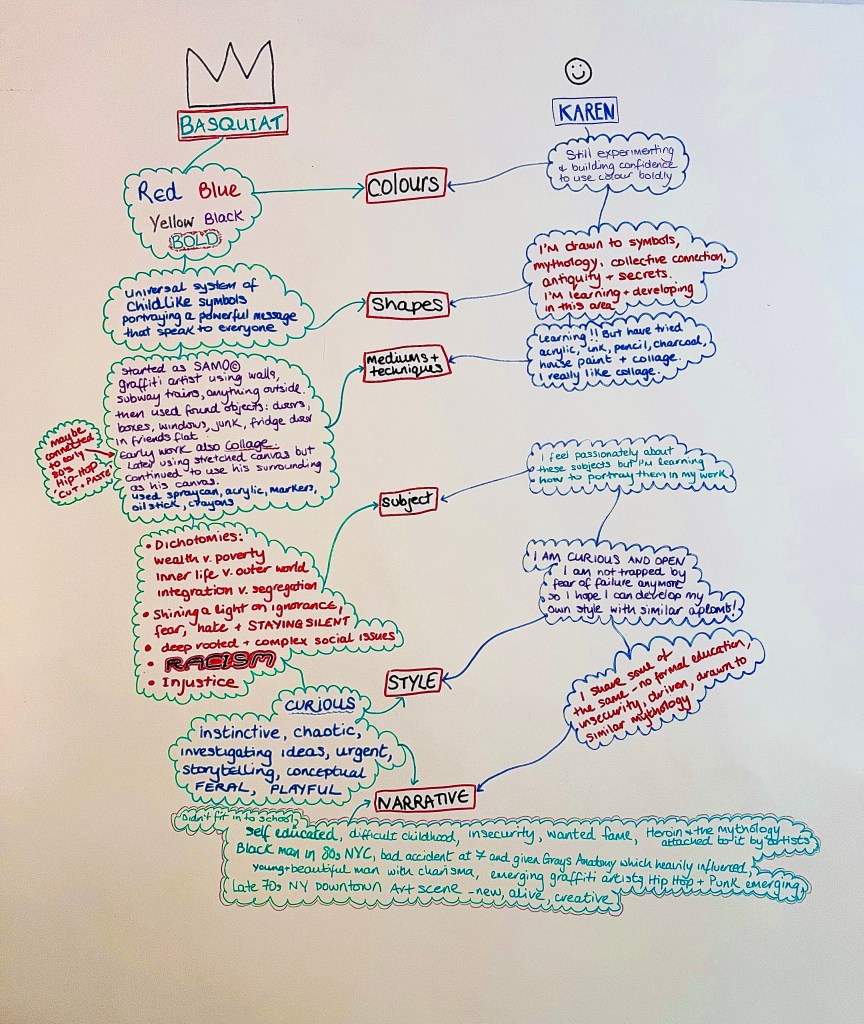 BASQUIAT
KAREN
Red Blue
Yellow Black
BOLD
Colours
Still experimenting
& building confidence
to use colour boldly
Universal system of
ChildLike symbols
portraying a powerful message
that speak to everyone
Shapes
I'M drawn to symbols,
mythology, collective connection,
antiquity + secrets.
I'M learning + developing
in this area
Started as SAMO©
graffiti artist using walls,
subway trains, anything outside.
then used found objects: doors,
boxes, windows, junk, fridge door
in friends flat.
Early work also collage.
Later using stretched canvas but
continued to use his surrounding
as his canvas.
used spraycan, acrylic, markers,
oilstick, crayons
maybe
connected
to early
80's
Hip-Hop
'CUT + PASTE'
Mediums +
techniques
Learning !! But have tried
acrylic, ink, pencil, charcoal,
house paint + collage.
I really like collage.
• Dichotomies:
Wealth v. poverty
Inner life v. outer world
integration v. segregation
• Shining a light on ignorance,
fear, hate + STAYING SILENT
• deep rooted + complex social issues
• RACISM
• Injustice
Subject
I feel passionately about
these subjects but I'm learning
how to portray them in my work
CURIOUS
instinctive, chaotic,
investigating ideas, urgent,
storytelling, conceptual
FERAL, PLAYFUL
STYLE
I AM CURIOUS AND OPEN
I am not trapped by
fear of failure anymore
so I hope I can develop my
own style with similar aplomb!
NARRATIVE
I share some of
the same - no formal education,
insecurity, driven, drawn to
similar mythology
Didn't fit in to school,
Self educated, difficult childhood, insecurity, wanted fame, Heroin & the mythology
attached to it by artists
Black man in 80s NYC, bad accident at 7 and given Grays Anatomy which heavily influenced,
young + beautiful man with charisma, emerging graffiti artists, Hip Hop + Punk emerging,
Late 70s NY Downtown Art scene - new, alive, creative